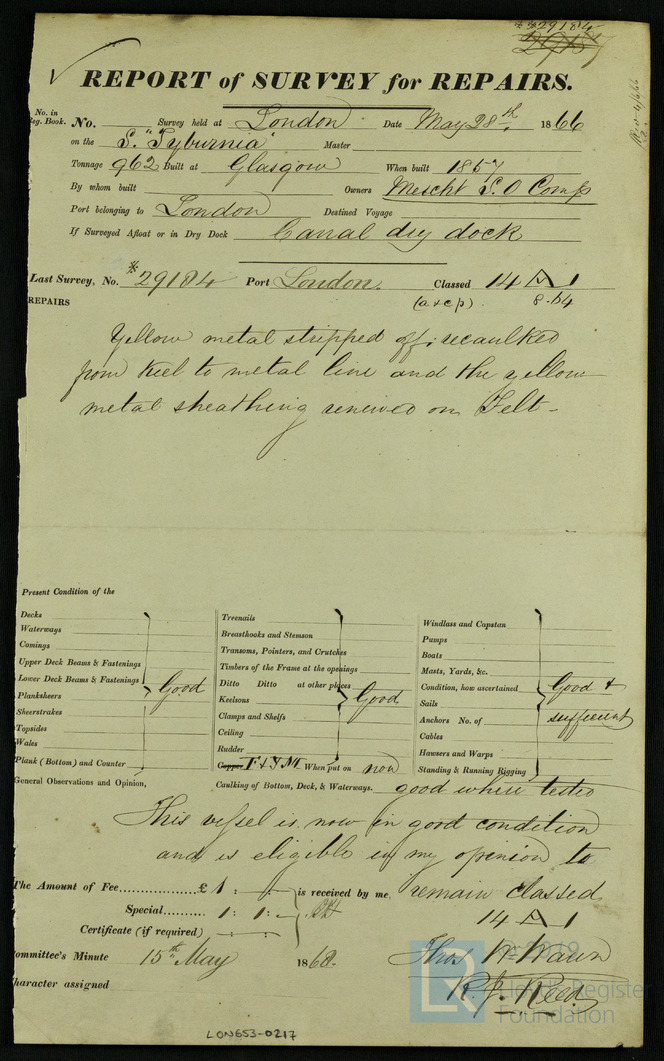 29184
REPORT of SURVEY for REPAIRS.
No. in Reg. Book. No. Survey held at London Date May 28th 1866
on the S. "Tyburnia" Master
Tonnage 962 Built at Glasgow When built 1857
By whom built Owners Mercht S. O Comp
Port belonging to London Destined Voyage
If Surveyed Afloat or in Dry Dock Canal dry dock
Last Survey, No. 29184 Port London. Classed 14 A 1
REPAIRS (a & c p). 8.64
Yellow metal stripped off; recaulked
from keel to metal line and the yellow
metal sheathing renewed on Felt-
Present Condition of the
Decks
Waterways
Comings
Upper Deck Beams & Fastenings
Lower Deck Beams & Fastenings
Planksheers
Good
Sheerstrakes
Topsides
Wales
Plank (Bottom) and Counter
General Observations and Opinion,
Treenails
Breasthooks and Stemson
Transoms, Pointers, and Crutches
Timbers of the Frame at the openings
Ditto Ditto at other places
Keelsons
Good
Clamps and Shelfs
Ceiling
Rudder
Copper F & Y M When put on now
Caulking of Bottom, Deck, & Waterways. good where tested
Windlass and Capstan
Pumps
Boats
Masts, Yards, &c.
Condition, how ascertained Good &
Sails
Anchors No. of sufficient
Cables
Hawsers and Warps
Standing & Running Rigging
This vessel is now in good condition
and is eligible in my opinion to
The Amount of Fee £ 1 : - : - is received by me, remain classed
Special 1 : 1 : - 14 A 1
Certificate (if required)
Committee's Minute 15th May 1868.
Character assigned R. J. Reed
© 2019
Lloyd's Register
Foundation
LON653-0217